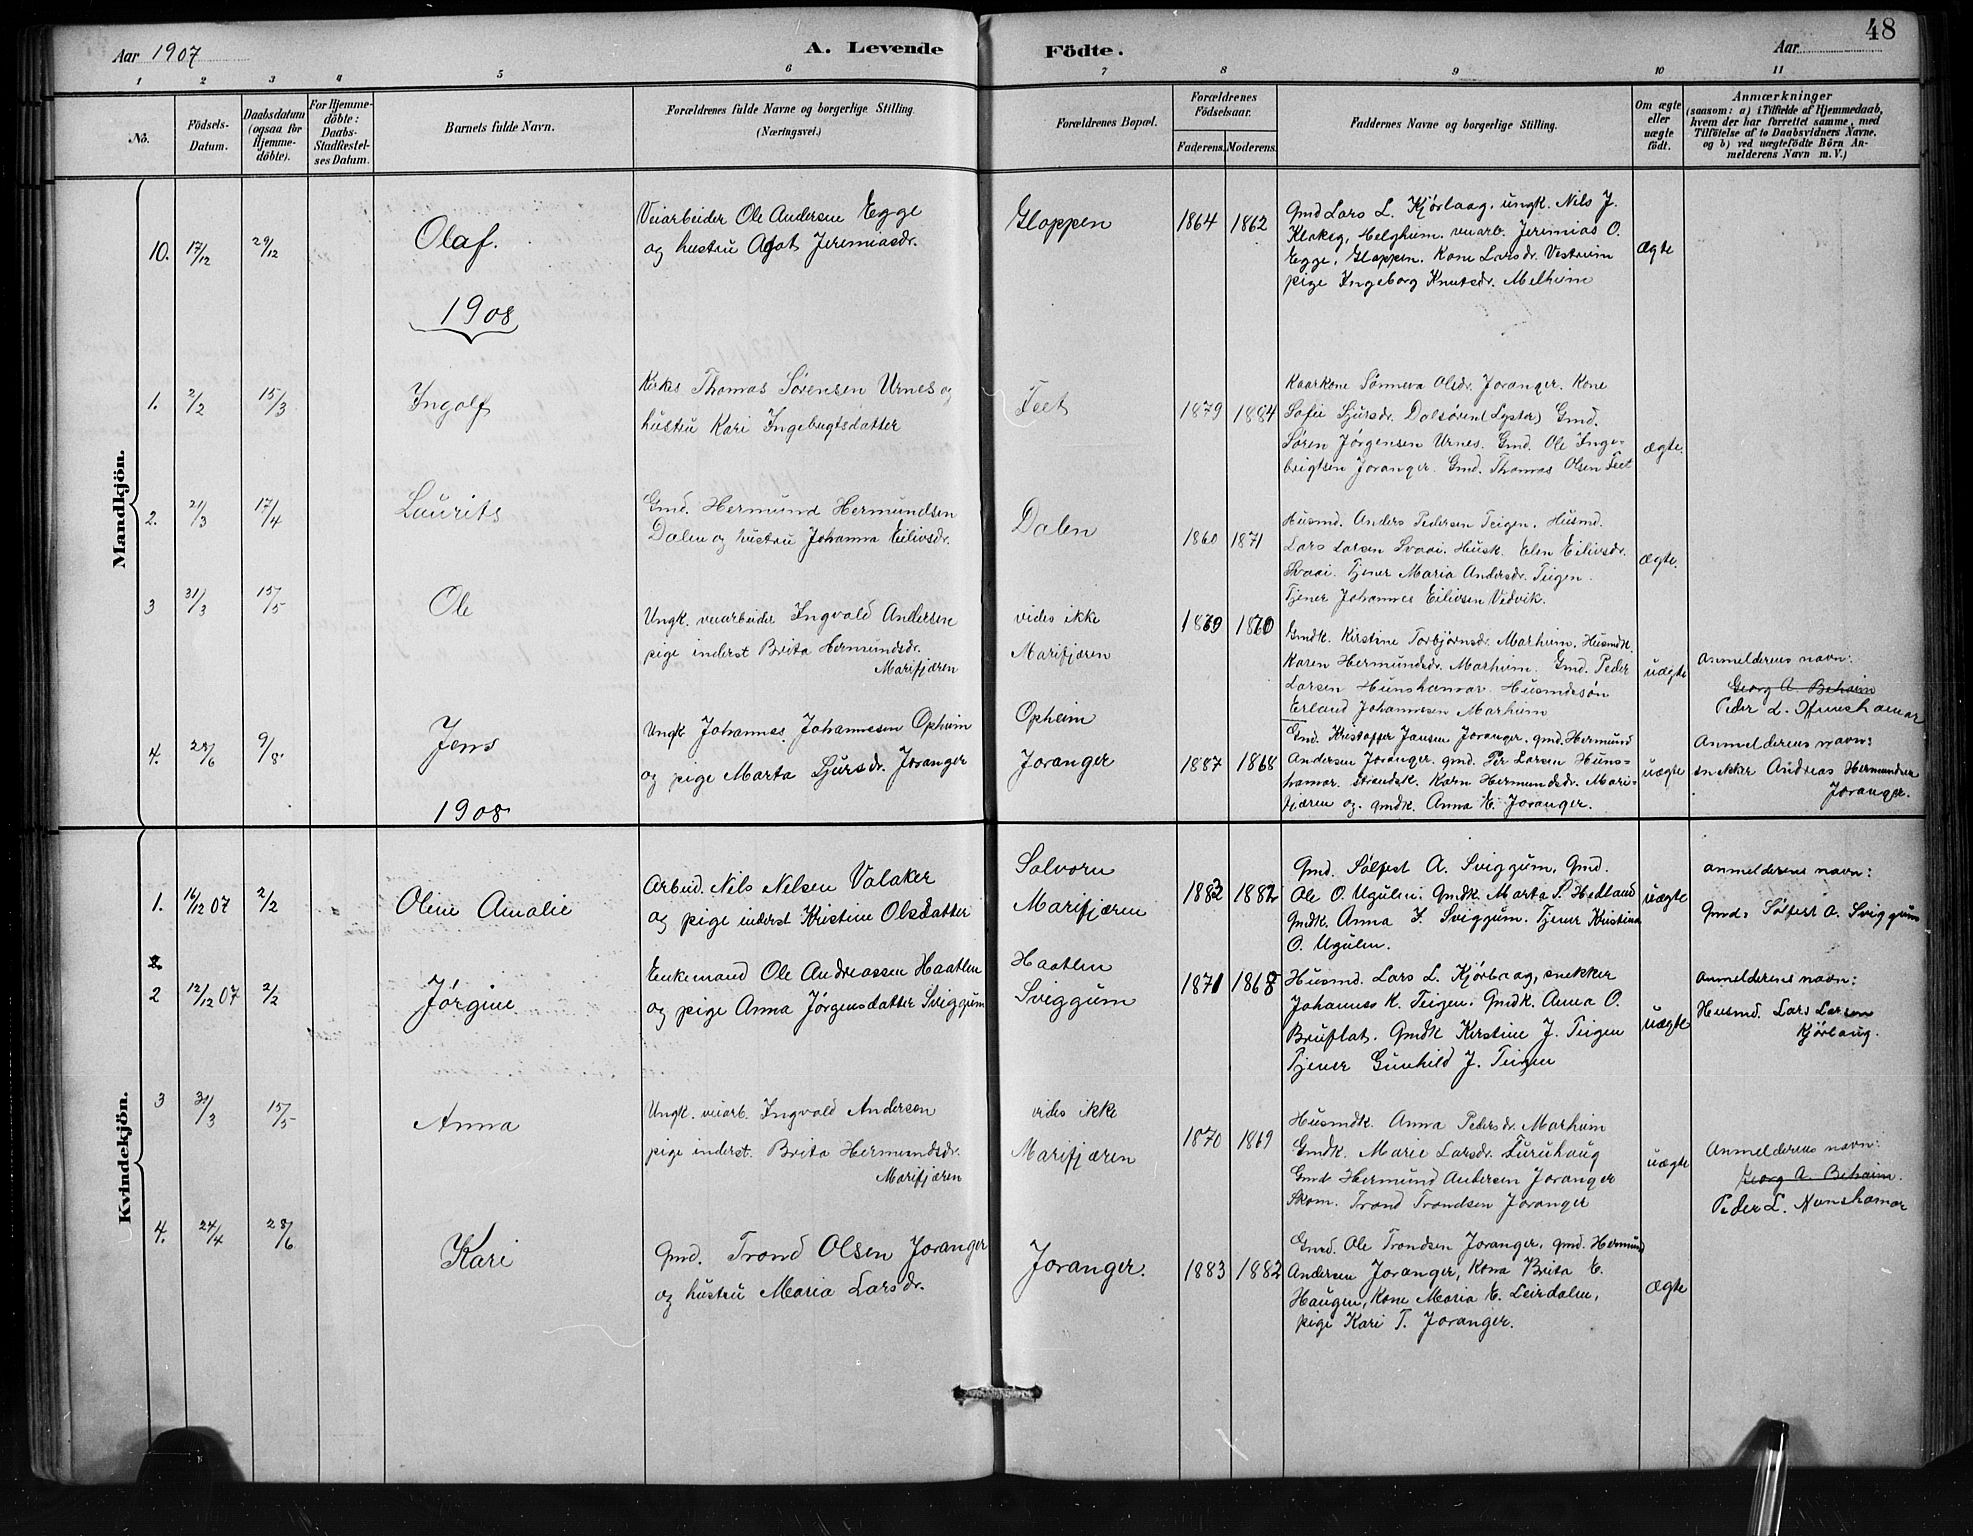 Aar 1907
A. Levende
Födte.
Aar
48
1 2 3 4 5 6 7 8 9 10 11
No.
Födsels-
Datum.
Daabsdatum
(ogsaa for
Hjemme-
döbte).
For Hjemme-
döbte:
Daabs-
Stadfæstel-
ses Datum.
Barnets fulde Navn.
Forældrenes fulde Navne og borgerlige Stilling.
(Næringsvei.)
Forældrenes Bopæl.
Forældrenes
Födselsaar.
Faderens. Moderens.
Faddernes Navne og borgerlige Stilling.
Om ægte
eller
uægte
födt.
Anmærkninger
(saasom: a) i Tilfælde af Hjemmedaab,
hvem der har forrettet samme, med
Tilföielse af to Daabsvidners Navne,
og b) ved uægtefödte Börn An-
melderens Navn m. V.)
Mandkjön.
10. 17/12 29/12
Olaf.
Veiarbeider Ole Andersen Egge
og hustru Agot Jeremiasdr.
Gloppen
1864 1862
Gmd Lars L. Kjørlaag, ungk. Nils J.
Klokeg, Melheim. veiarb. Jeremias O.
Egge, Gloppen. Kone Larsdr. Vestrum
pige Ingeborg Knutsdr. Melheim
Ægte
1908
1. 2/2 15/3
Ingolf
Kirkes Thomas Sørensen Urnes og
hustru Kari Ingebrigtsdatter
Feet
1879 1884
Kaarkone Sønneva Olsdr. Joranger. Kone
Sofie Sjursdr. Dalsøren (Lyster) Gmd.
Søren Jørgensen Urnes. Gmd. Ole Inge-
brigtsen Joranger. Gmd. Thomas Olsen Feet
ægte.
2. 21/3 17/4
Laurits
Gmd. Hermund Hermundsen
Dalen og hustru Johanna Eilivsdr.
Dalen
1860 1871
Husmd. Anders Pedersen Teigen. Husmd.
Lars Larsen Svaai. Husk. Elen Eilivsdr.
Svaai. Tjener Maria Andersdr. Teigen.
Tjener Johannes Eilivsen Vedvik.
ægte.
3 31/3 15/5
Ole
Ungk. veiarbeider Ingvald Andersen
pige inderst Brita Hermundsdr.
Marifjæren
vides ikke
Marifjæren
1869 1870
Gmdk. Kirstine Torbjørnsdr. Marheim. Husmdk.
Karen Hermundsdr. Marheim. Gmd. Peder
Larsen Hunshamar. Husmdssøn
Erland Johannesen Marheim
uægte
Anmelderens navn:
Georg A. Beheim
Peder L. Hunshamar
4. 28/6 9/8.
Jens
Ungk Johannes Johannesen Opheim
og pige Marta Sjursdr. Joranger
Opheim
Joranger
1887 1868
Gmd. Kristoffer Jansen Joranger. gmd. Hermund
Andersen Joranger. gmd. Per Larsen Huns-
hamar. Strandsk. Karn Hermundsdr. Mari-
fjæren og gmdk. Anna E. Joranger.
uægte
Anmelderens navn:
snekker Andreas Hermundsen
Joranger.
1908
Kvindekjön.
1. 16/12 07 2/2
Oline Amalie
Arbeid. Nils Nelsen Valaker
og pige inderst Kristine Olsdatter
Solvorn
Marifjæren
1883 1882
Gmd. Sølfest A. Sviggum, Gmd.
Ole O. Ugulen. Gmdk. Marta S. Hedland
Gmdk. Anna I. Sviggum. Tjener Kristina
O. Ugulen.
uægte
anmelderens navn:
Gmd. Sølfest A. Sviggum
2
2 12/12 07 2/2
Jørgine
Enkemand Ole Andreassen Haatlen
og pige Anna Jørgensdatter Sviggum
Haatlen
Sviggum
1871 1868
Husmd. Lars L. Kjørlaag, snekker
Johannes K. Teigen. Gmdk. Anna O.
Bruflat. Gmdk Kirstine J. Teigen
Tjener Gunhild J. Teigen
uægte
anmelderens navn:
Husmd. Lars Larsen
Kjørlaug.
3 31/3 15/5
Anna
Ungk. veiarb. Ingvald Andersen
pige inderst. Brita Hermundsdr.
Marifjæren
vides ikke
Marifjæren
1870 1869
Husmdk. Anna Pedersdr. Marheim
Gmdk. Marie Larsdr. Furuhaug
Gmd Hermund Andersen Joranger
Skom. Trond Trondsen Joranger
uægte
Anmelderens navn:
Georg A. Beheim.
Peder L. Hunshamar
4. 24/4 28/6
Kari
Gmd. Trond Olsen Joranger
og hustru Maria Larsdr.
Joranger.
1883 1882
Gmd. Ole Trondsen Joranger, gmd. Hermund
Andersen Joranger, Kona Brita E.
Haugen, Kone Maria E. Leirdalen,
pige Kari T. Joranger.
Ægte